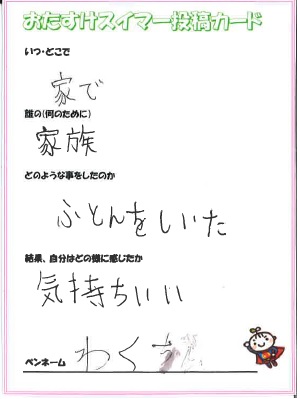 おたすけスイマー投稿カード
いつ・どこで
家で
誰の(何のために)
家族
どのような事をしたのか
ふとんをしいた
結果、自分はどの様に感じたか
気持ちいい
ペンネーム わく